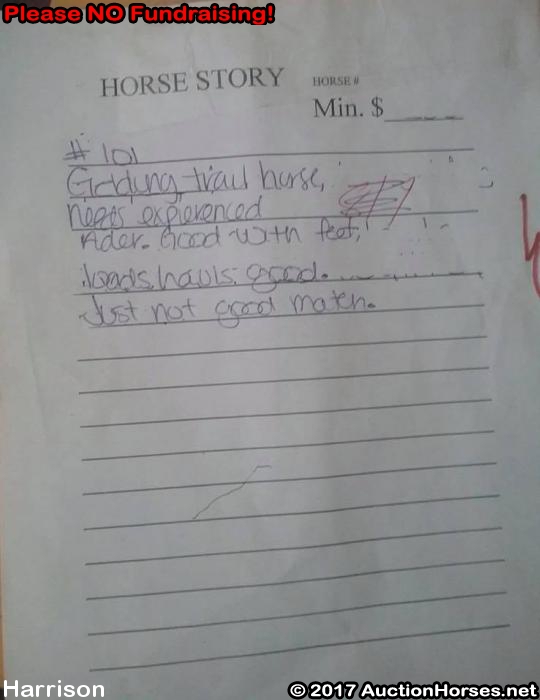 Please NO Fundraising!
HORSE STORY HORSE #
Min. $
# 101
Gelding, trail horse,
needs expierenced
rider. Good with feet,
loads, hauls, good.
Just not good match.
Harrison © 2017 AuctionHorses.net